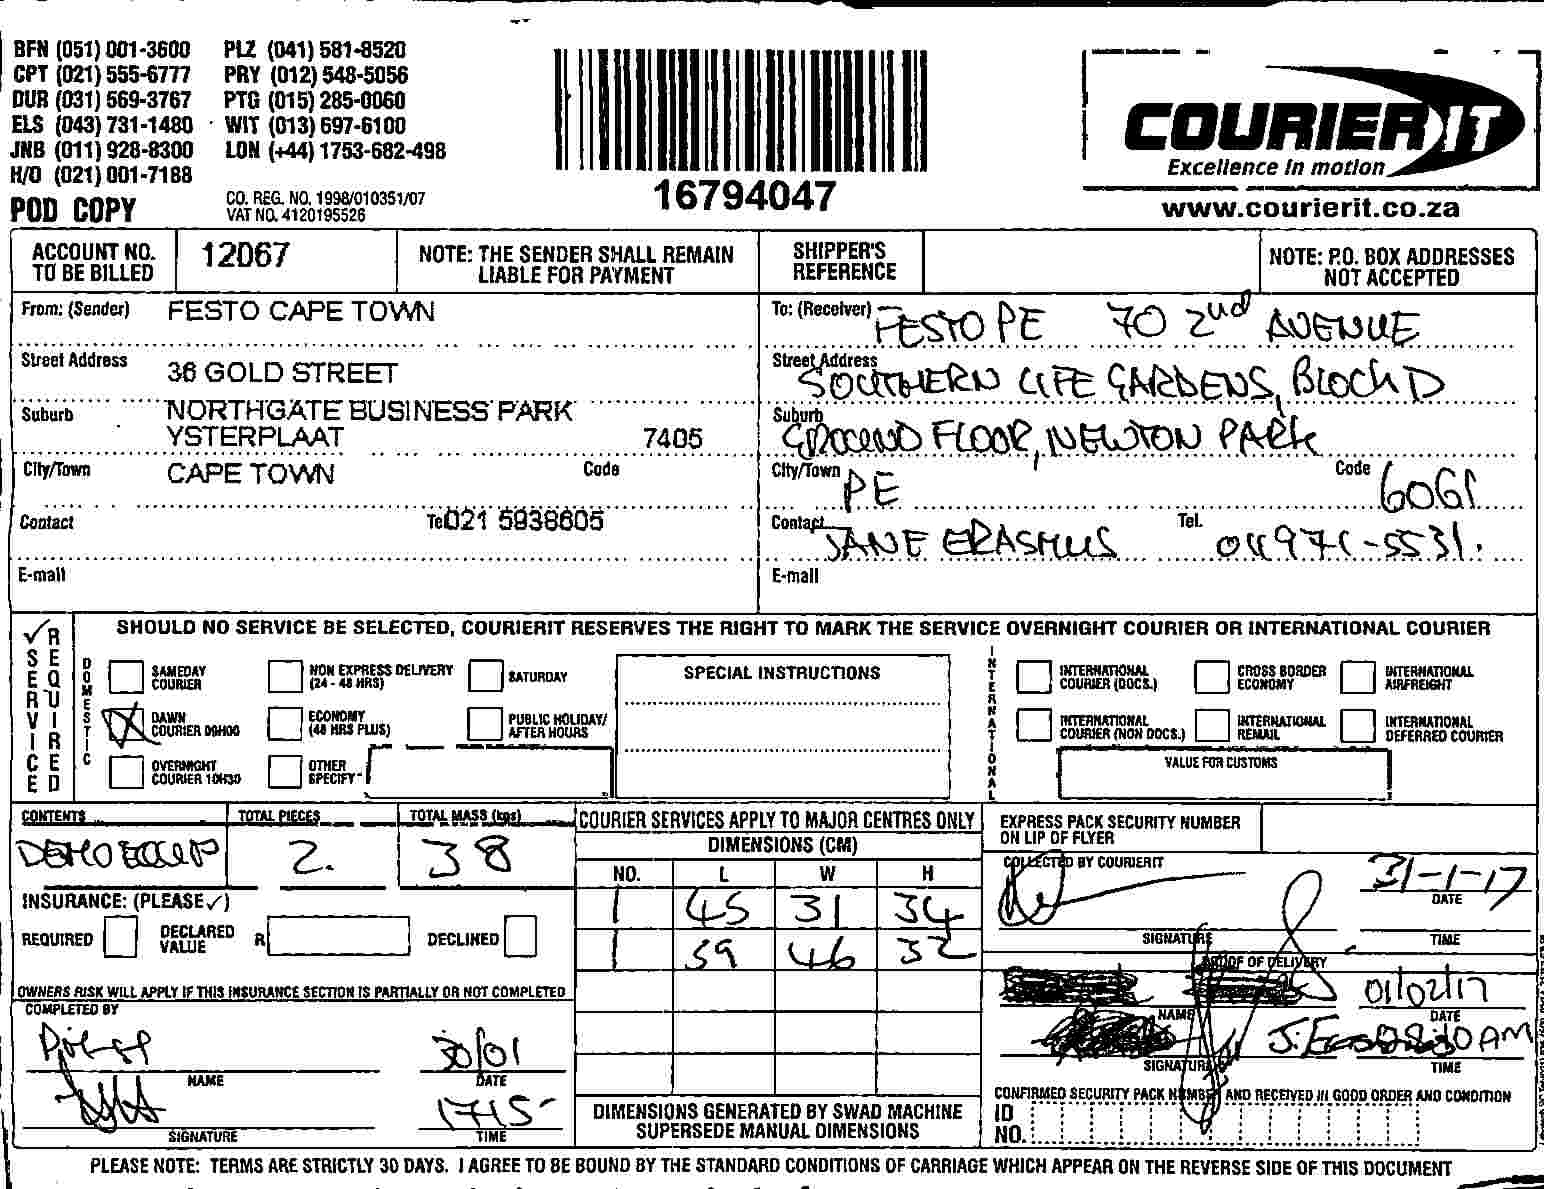 BFN (051) 001-3600 PLZ (041) 581-8520
CPT (021) 555-6777 PRY (012) 548-5056
DUR (031) 569-3767 PTG (015) 285-0060
ELS (043) 731-1480 WIT (013) 697-6100
JNB (011) 928-8300 LON (+44) 1753-682-498
H/O (021) 001-7188
POD COPY
CO. REG. NO. 1998/010351/07
VAT NO. 4120195526
16794047
COURIER IT
Excellence in motion
www.courierit.co.za
ACCOUNT NO. TO BE BILLED 12067
NOTE: THE SENDER SHALL REMAIN LIABLE FOR PAYMENT
SHIPPER'S REFERENCE
NOTE: P.O. BOX ADDRESSES NOT ACCEPTED
From: (Sender) FESTO CAPE TOWN
Street Address 36 GOLD STREET
Suburb NORTHGATE BUSINESS PARK
YSTERPLAAT 7405
City/Town CAPE TOWN Code
Contact Tel 021 5938605
E-mail
To: (Receiver) FESTO PE 70 2nd AVENUE
Street Address SOUTHERN LIFE GARDENS, BLOCK D
Suburb GROUND FLOOR, NEWTON PARK
City/Town PE Code 6061
Contact JANE ERASMUS Tel. 041 971-5531.
E-mail
SERVICE REQUIRED
SHOULD NO SERVICE BE SELECTED, COURIERIT RESERVES THE RIGHT TO MARK THE SERVICE OVERNIGHT COURIER OR INTERNATIONAL COURIER
DOMESTIC
SAMEDAY COURIER
NON EXPRESS DELIVERY (24 - 48 HRS)
SATURDAY
DAWN COURIER 09H00
ECONOMY (48 HRS PLUS)
PUBLIC HOLIDAY/ AFTER HOURS
OVERNIGHT COURIER 10H30
OTHER SPECIFY
SPECIAL INSTRUCTIONS
INTERNATIONAL
INTERNATIONAL COURIER (DOCS.)
CROSS BORDER ECONOMY
INTERNATIONAL AIRFREIGHT
INTERNATIONAL COURIER (NON DOCS.)
INTERNATIONAL REMAIL
INTERNATIONAL DEFERRED COURIER
VALUE FOR CUSTOMS
CONTENTS TOTAL PIECES TOTAL MASS (kgs)
DEMO EQUIP 2. 38
INSURANCE: (PLEASE ✓)
REQUIRED DECLARED VALUE R DECLINED
OWNERS RISK WILL APPLY IF THIS INSURANCE SECTION IS PARTIALLY OR NOT COMPLETED
COMPLETED BY
30/01
NAME DATE
17H15
SIGNATURE TIME
COURIER SERVICES APPLY TO MAJOR CENTRES ONLY
DIMENSIONS (CM)
NO. L W H
1 45 31 34
1 59 46 32
DIMENSIONS GENERATED BY SWAD MACHINE
SUPERSEDE MANUAL DIMENSIONS
EXPRESS PACK SECURITY NUMBER
ON LIP OF FLYER
COLLECTED BY COURIERIT
31-1-17
DATE
SIGNATURE TIME
PROOF OF DELIVERY
01/02/17
NAME DATE
08:30 AM
SIGNATURE TIME
CONFIRMED SECURITY PACK NUMBER AND RECEIVED IN GOOD ORDER AND CONDITION
ID NO.
PLEASE NOTE: TERMS ARE STRICTLY 30 DAYS. I AGREE TO BE BOUND BY THE STANDARD CONDITIONS OF CARRIAGE WHICH APPEAR ON THE REVERSE SIDE OF THIS DOCUMENT